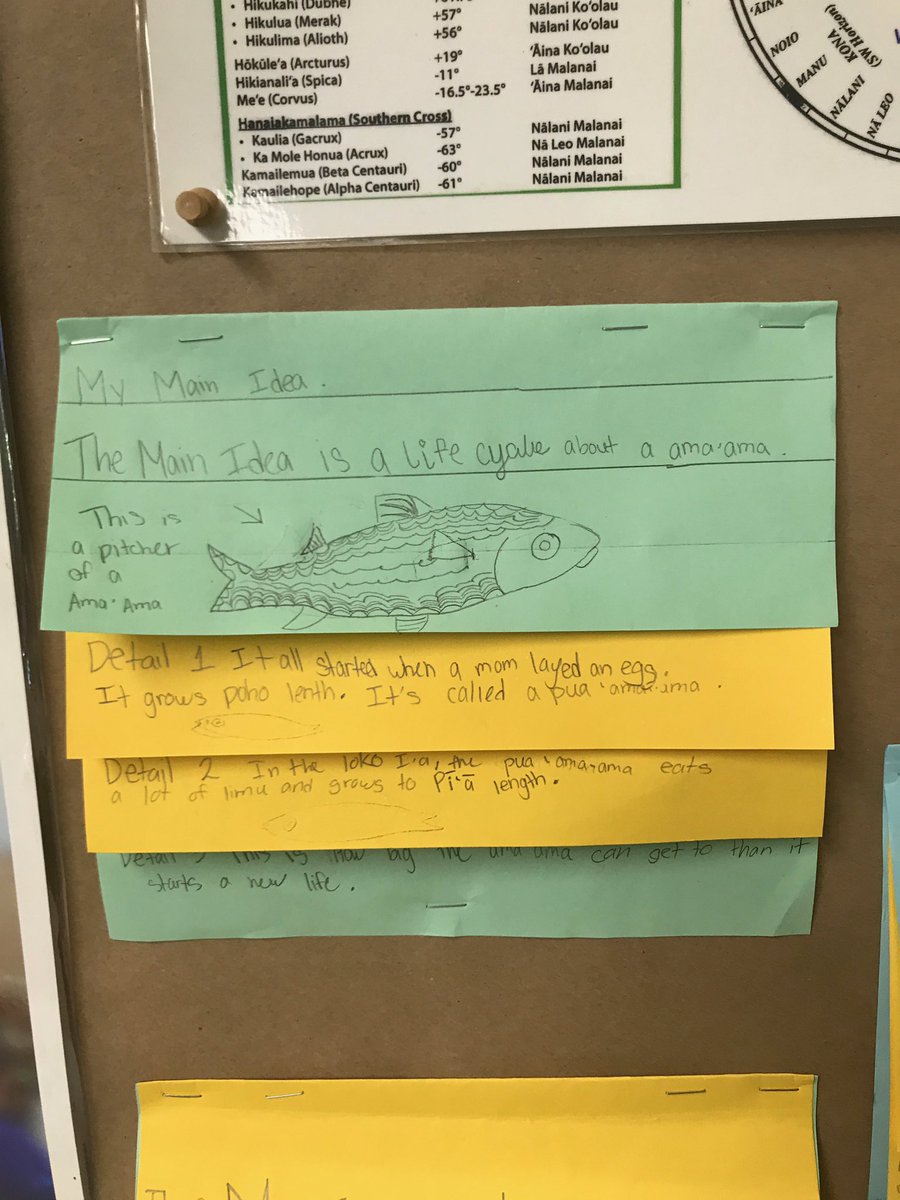 • Hikukahi (Dubhe)
• Hikulua (Merak) +57° Nālani Koʻolau
• Hikulima (Alioth) +56° Nālani Koʻolau
Hōkūleʻa (Arcturus) +19° ʻĀina Koʻolau
Hikianaliʻa (Spica) -11° Lā Malanai
Meʻe (Corvus) -16.5°-23.5° ʻĀina Malanai
Hanaiakamalama (Southern Cross)
• Kaulia (Gacrux) -57° Nālani Malanai
• Ka Mole Honua (Acrux) -63° Nā Leo Malanai
Kamailemua (Beta Centauri) -60° Nālani Malanai
Kamailehope (Alpha Centauri) -61° Nālani Malanai
ʻĀINA
NOIO
MANU
NĀLANI
NĀ LEO
KONA
(SW Horizon)
My Main Idea.
The Main Idea is a life cycale about a ama'ama.
This is
a pitcher
of a
Ama'Ama
Detail 1 It all started when a mom layed an egg.
It grows poho lenth. It's called a pua 'ama'ama.
Detail 2 In the loko I'a, the pua 'ama'ama eats
a lot of limu and grows to Pī'ā length.
Detail 3 This is how big the ama'ama can get to than it
starts a new life.